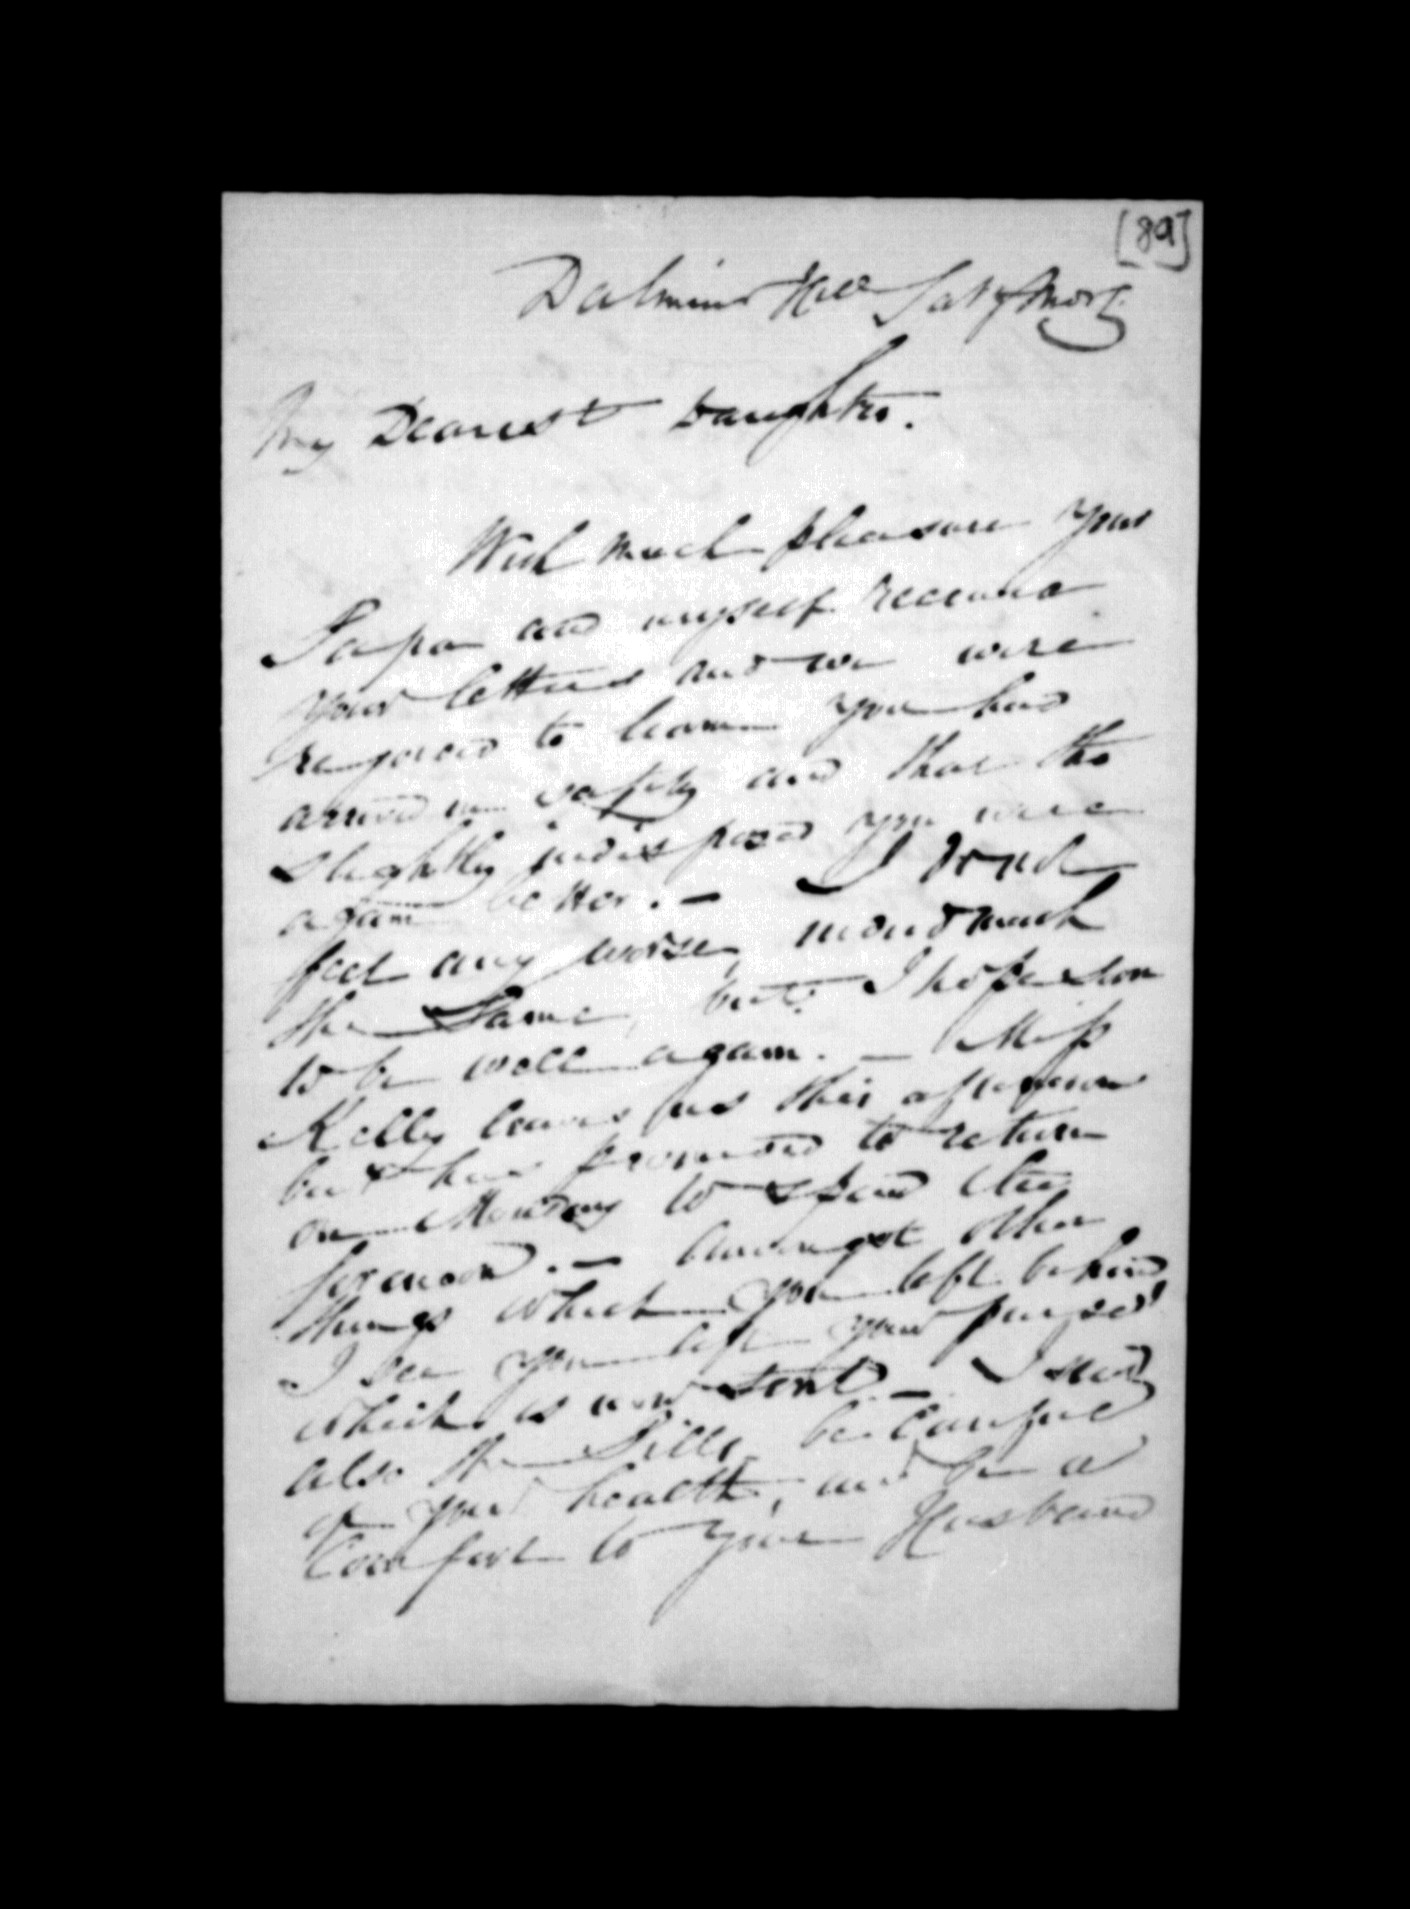 [89]
Dalmine Hall Saty Morg
My Dearest Daughter.
With much pleasure your
Papa and myself received
your letters and we were
rejoiced to learn you had
arrived in safety and that tho
slightly indisposed you were
again better. — I do not
feel any worse, much
the Same, but I hope soon
to be well again. — Miss
Kelly leaves us this afternoon
but has promised to return
on Monday to spend the
forenoon. — Amongst other
things which you left behind
I see you left your purse
which is now sent — I send
also the Pills, be Careful
of your health, and be a
Comfort to your Husband